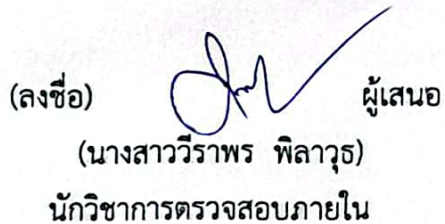 (ลงชื่อ) ผู้เสนอ
(นางสาววีราพร พิลาวุธ)
นักวิชาการตรวจสอบภายใน